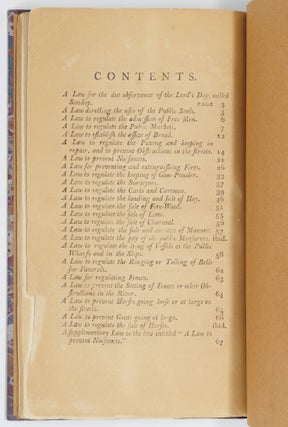 CONTENTS.
A Law for the due observance of the Lord's Day, called
Sunday. PAGE 3
A Law directing the uses of the Public Seals. 5
A Law to regulate the admission of Free Men. 6
A Law to regulate the Public Markets. 7
A Law to establish the assize of Bread. 12
A Law to regulate the Paving and keeping in
repair, and to prevent Obstructions in the streets. 14
A Law to prevent Nusances. 21
A Law for preventing and extinguishing Fires. 26
A Law to regulate the keeping of Gun-Powder. 33
A Law to regulate the Surveyors. 37
A Law to regulate the Carts and Cartmen. 39
A Law to regulate the landing and sale of Hay. 46
A Law to regulate the sale of Fire-Wood. 51
A Law to regulate the sale of Lime. 65
A Law to regulate the sale of Charcoal. 56
A Law to regulate the sale and carriage of Manure. 57
A Law to regulate the pay of the public Measurers. ibid.
A Law to regulate the lying of Vessels at the Public
Wharfs and in the Slips. 58
A Law to regulate the Ringing or Tolling of Bells
for Funerals. 62
A Law for regulating Fences. 63
A Law to prevent the Setting of Fences or other Ob-
structions in the River. 63
A Law to prevent Horses going loose or at large in
the streets. 65
A Law to prevent Goats going at large. 66
A Law to regulate the sale of Horses. ibid.
A supplementary Law to the law entitled "A Law to
prevent Nusances." 67